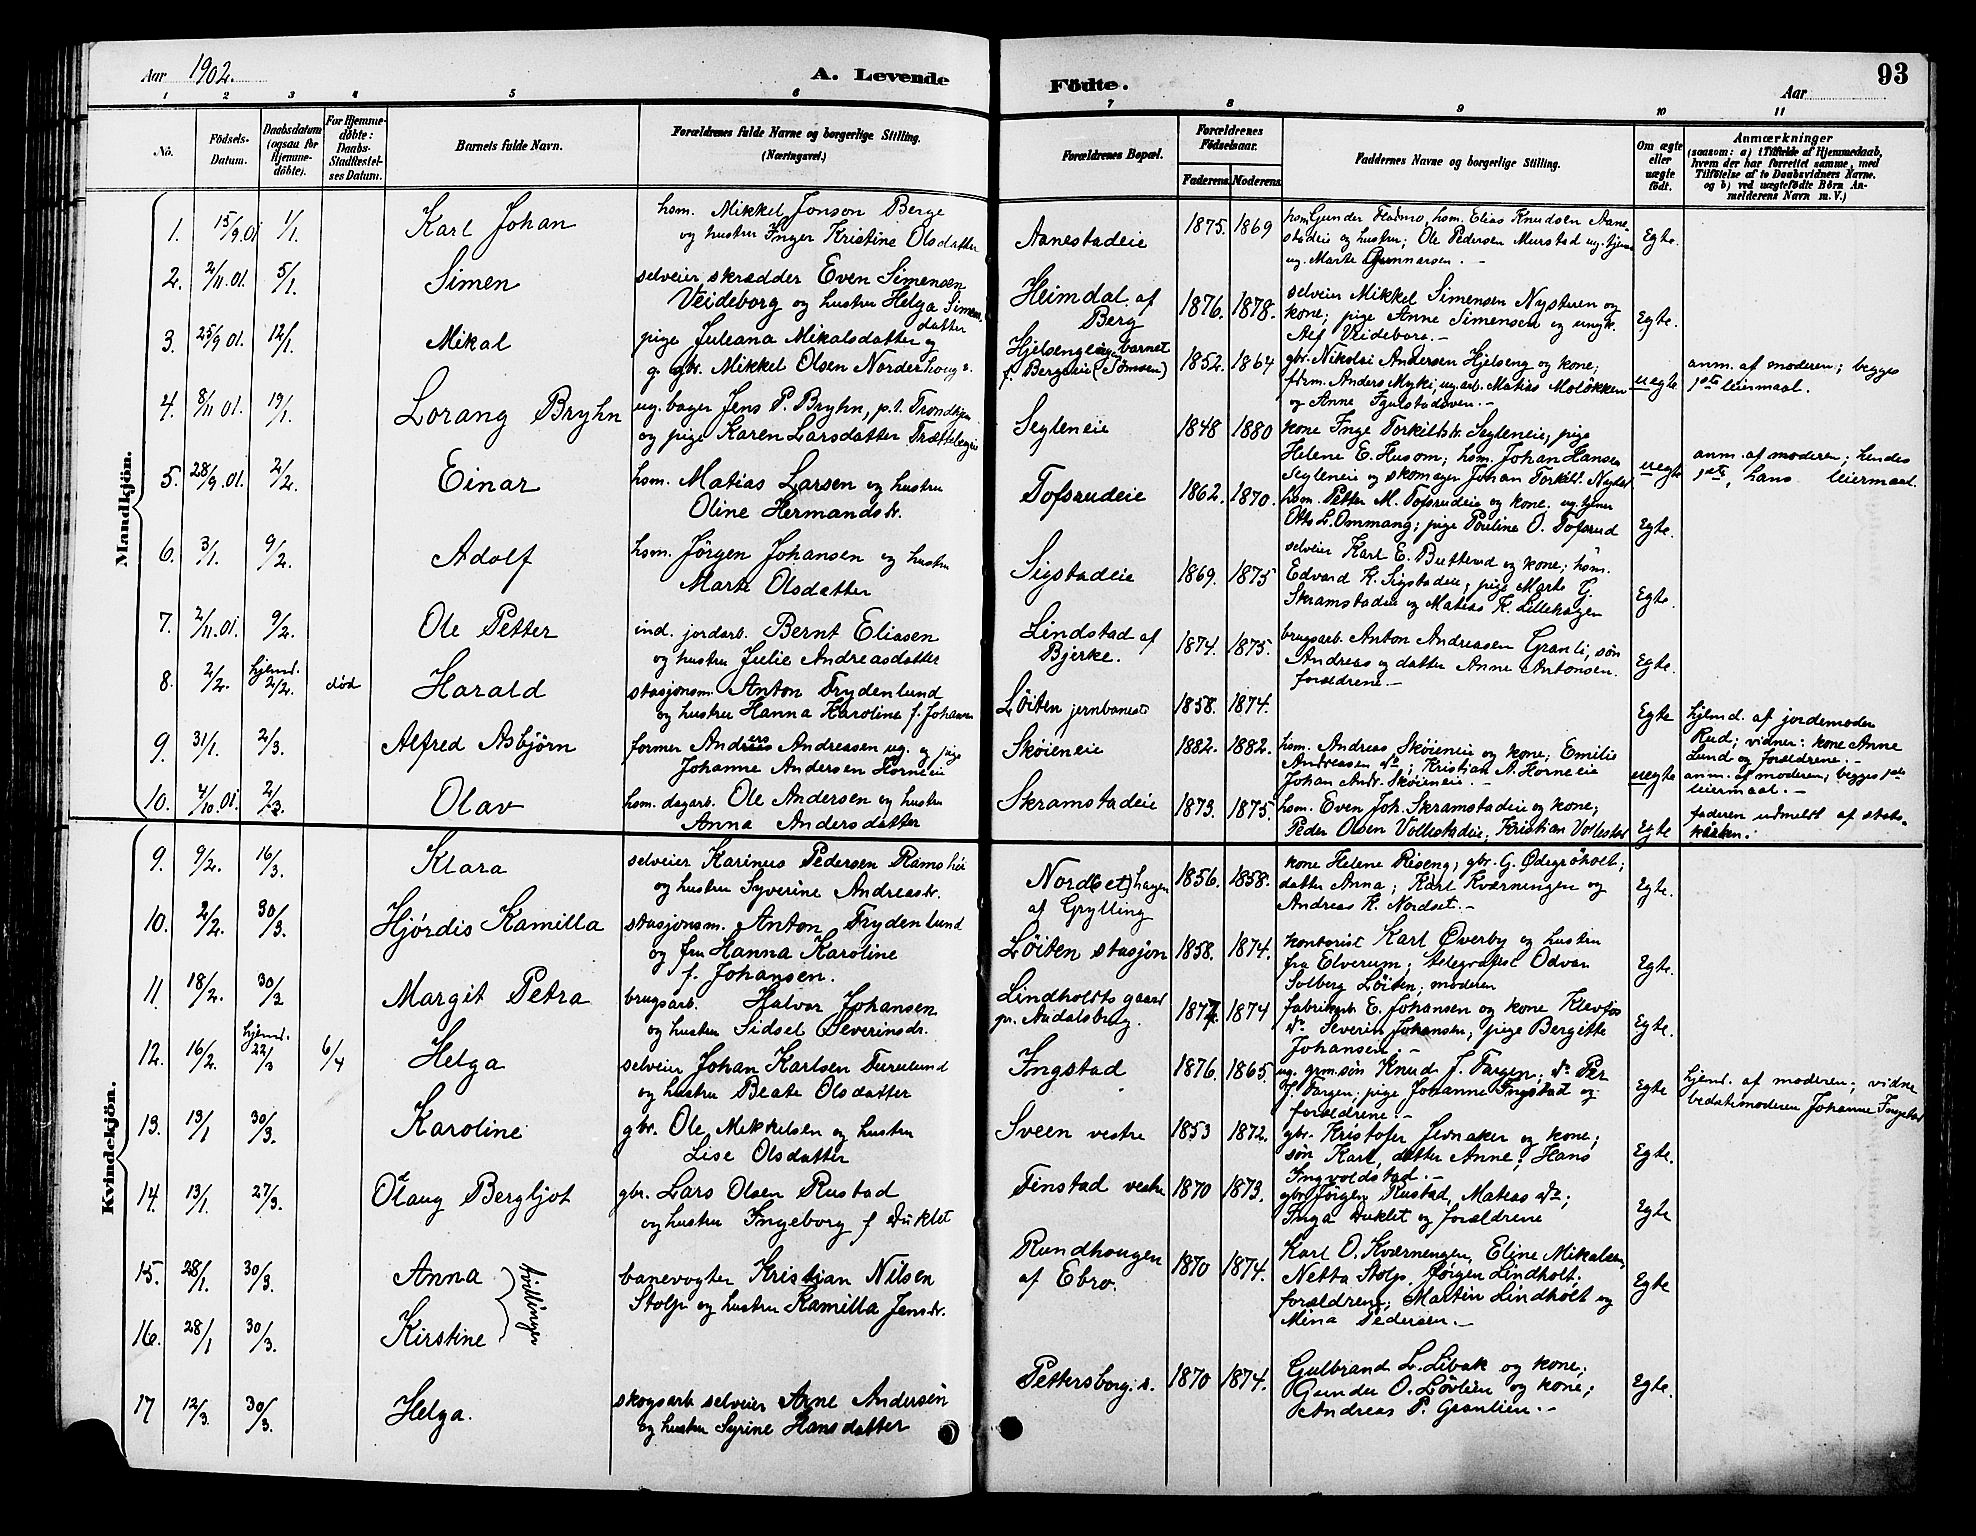 Aar 1902.
A. Levende Födte.
93
Aar
1 2 3 4 5 6 7 8 9 10 11
No.
Födsels-Datum.
Daabsdatum (ogsaa for Hjemmedöbte).
For Hjemmedöbte: Daabs-Stadfæstelses Datum.
Barnets fulde Navn.
Forældrenes fulde Navne og borgerlige Stilling. (Næringsvei.)
Forældrenes Bopæl.
Forældrenes Födselsaar.
Faderens. Moderens.
Faddernes Navne og borgerlige Stilling.
Om ægte eller uægte födt.
Anmærkninger
(saasom: a) i Tilfælde af Hjemmedaab, hvem der har forrettet samme, med Tilföielse af to Daabsvidners Navne. og b) ved uægtefödte Börn Anmelderens Navn m. V.)
Mandkjön.
1. 15/9.01 1/1. Karl Johan
hsm. Mikkel Jonson Berge
og hustru Inger Kristine Olsdatter
Aanestadeie 1875. 1869
hsm Gunder Flatmo, hsm. Elias Knudsen Aane-
stadeie og hustru; Ole Pedersen Murstad ug. tjener
ug. Marte Gunnarsen. -
Egte.
2. 2/11.01. 5/1. Simen
selveier skrædder Even Simensen
Veideborg og hustru Helga Simens
datter
Heimdal af
Berg
1876. 1878.
selveier Mikkel Simensen Nystuen og
kone; pige Anne Simensen og ungk.
Alf Veideborg. -
Egte.
3. 25/9 01. 12/1. Mikal
pige Juleana Mikalsdatter og
g. gbr. Mikkel Olsen Norderhoug s.
1852. 1864
gbr. Nikolai Andersen Hjelseng og kone;
fdrm. Anders Myki; ug. arb. Matias Moløkken
og Anne
uegte
anm. af moderen; begges
1ste leiermaal.
4. 8/11 01. 19/1. Lorang Bryhn
ug. bager Jens P. Bryhn, p.t. Trondhjem
og pige Karen Larsdatter
Segleneie 1848 1880
kone Inge Torkildsdr. Segleneie, pige
Helene E. Husom; hsm. Johan Hansen
Segleneie og skomager Johan Torkild. Nyder
uegte
anm. af moderen; hendes
1ste, hans leiermaal.
5. 28/9.01. 2/2. Einar
hsm. Matias Larsen og hustru
Oline Hermandsdr.
Tofsrudeie 1862. 1870.
hsm. Petter M. Tofsrudeie og kone. ug. tjener
Otto L. Ommang; pige Pauline O. Tofsrud
Egte.
6. 3/1. 9/2. Adolf
hsm. Jörgen Johansen og hustru
Marte Olsdatter
Sigstadeie 1869. 1875
selveier Karl E. Butterud og kone; hsm.
Edvard K. Sigstadeie; pige Marte G.
Skramstadeie og Matias K. Lillehagen
Egte.
7. 2/11.01. 9/2. Ole Petter
ind. jordarb. Bernt Eliasen
og hustru Julie Andreasdatter
Lindstad af
Bjerke.
1874. 1875.
brugsarb. Anton Andreasen Granli, sön
Andreas og datter Anne Antonsen.
forældrene -
Egte.
8. 2/2. hjemd. 2/2. död Harald
stasjonsm. Anton Frydenlund
og hustru Hanna Karoline f. Johansen
Löiten jernbanest. 1858. 1874.
Egte
hjemd. af jordemoder
Rud; vidner: kone Anne
Lund og forældrene. -
9. 31/1. 2/3. Alfred Asbjörn
former Anders Andreasen ug. og pige
Johanne Andersen Horneie
Skøieneie 1882. 1882.
hsm. Andreas Skøieneie og kone; Emilie
Andreasen do; Kristian A. Horneie
Johan Andr. Skøieneie. -
uegte
anm. af moderen; begges 1ste
leiermaal. -
10. 4/10.01. 2/3. Olav
hsm. dagarb. Ole Andersen og hustru
Anna Andersdatter
Skramstadeie 1873. 1875.
hsm. Even Joh. Skramstadeie og kone;
Peder Olsen Vollestadeie, Kristian Vollestad
Egte
faderen udmeldt af stats-
kirken.
Kvindekjön.
9. 9/2. 16/3. Klara
selveier Karinus Pedersen Ramshöi
og hustru Syverine Andreasdr.
Nord(set)hagen
af Grylling
1856. 1858.
kone Helene Riseng; gbr. G. Ødegröholt;
datter Anna; Karl Kværningen og
Andreas K. Nordset. -
Egte.
10. 2/2. 30/3. Hjördis Kamilla
stasjonsm. Anton Frydenlund
og fru Hanna Karoline
f. Johansen.
Löiten stasjon 1858. 1874.
kontorist Karl Øverby og hustru
fra Elverum; telegrafist Odvar
Solberg Löiten; moderen
Egte.
11. 18/2. 30/3 Margit Petra
brugsarb. Halvor Johansen
og hustru Sidsel Severinsdr.
Lindholts gaard
pr. Aadalsbrug.
1874. 1874
fabrikarb. E. Johansen og kone Klevfos
do Severin Johansen; pige Bergitte
Johansen. -
Egte.
12. 16/2. hjemd. 22/3 6/4 Helga
selveier Johan Karlsen Furulund
og hustru Beate Olsdatter
Ingstad 1876. 1865.
ug. grm. sön Knud J. Fargen; do Per
J. Farger; pige Johanne Ingstad og
forældrene. -
Egte
hjemd. af moderen; vidne
bedstemoderen Johanne Ingstad
13. 13/1 30/3. Karoline
gbr. Ole Mikkelsen og hustru
Lise Olsdatter
Sveen vestre 1853 1872.
gbr. Kristofer Jevnaker og kone;
sön Karl, datter Anne; Hans
Ingvoldstad. -
Egte.
14. 13/1. 27/3. Olaug Bergljot
gbr. Lars Olsen Rustad
og hustru Ingeborg f Duklet
Finstad vestre 1870 1873.
gbr. Jörgen Rustad, Matias do;
Inga Duklet og forældrene
Egte
15. 28/1. 30/3. Anna
Tvillinger
banevogter Kristian Nilsen
Stolp og hustru Kamilla Jensdr.
Rundhougen
af Ebro.
1870 1874.
Karl O. Kværnengen, Eline Mikalsen,
Netta Stolp, Jörgen Lindholt;
forældrene; Martin Lindholt og
Mina Pedersen. -
Egte
16. 28/1 30/3. Kirstine
17 12/3. 30/3. Helga.
skogsarb. selveier Arne Andersen
og hustru Syrine Hansdatter
Pettersborg: s. 1870 1874.
Gulbrand L. Libak og kone;
Gunder O. Lövlien og kone;
Andreas P. Granlien. -
Egte.